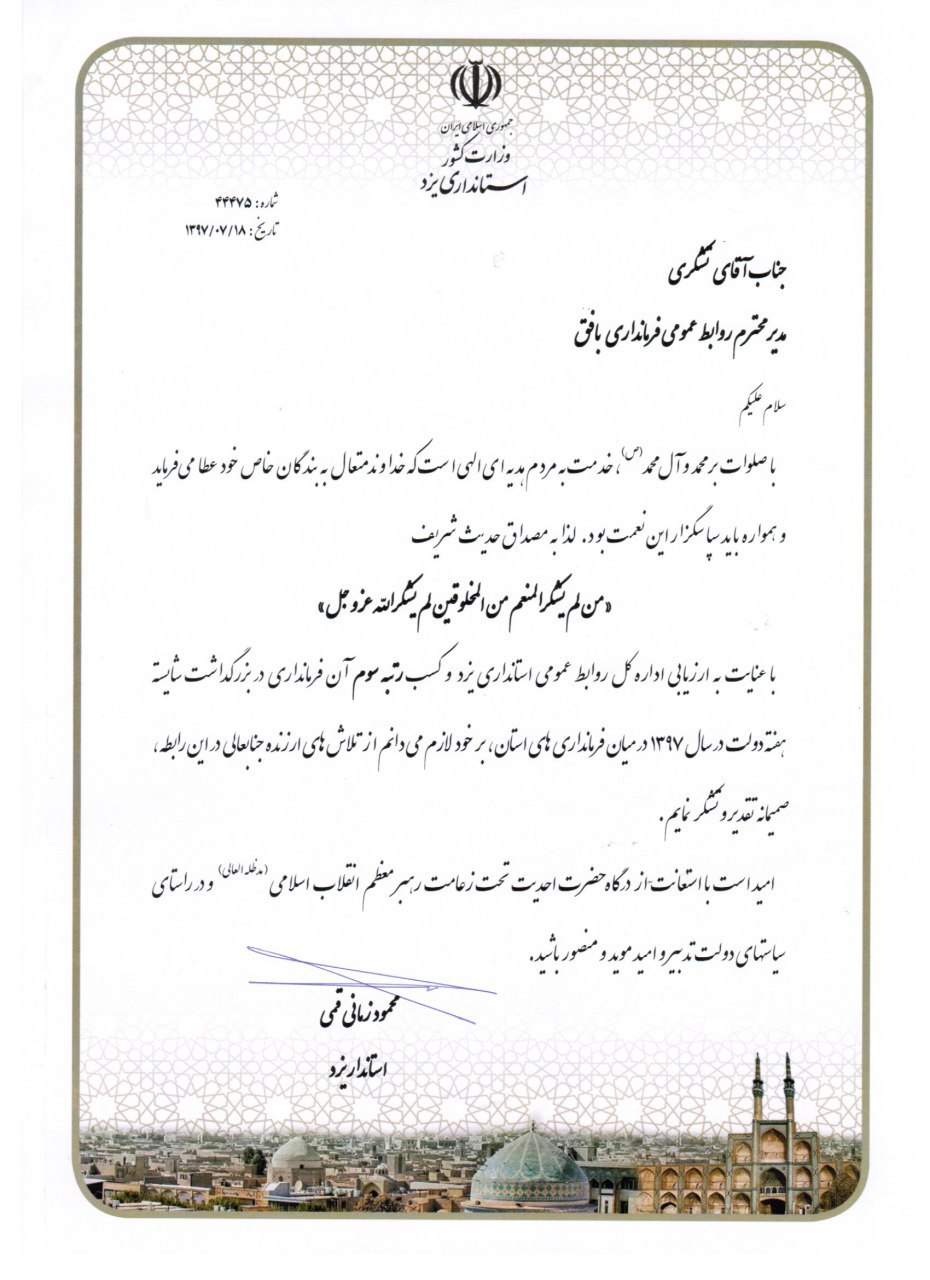 جمهوری اسلامی ایران
وزارت کشور
استانداری یزد
شماره: ۴۴۴۷۵
تاریخ: ۱۳۹۷/۰۷/۱۸
جناب آقای تشکری
مدیر محترم روابط عمومی فرمانداری بافق
سلام علیکم
با صلوات بر محمد و آل محمد (ص)، خدمت به مردم هدیه ای الهی است که خداوند متعال به بندگان خاص خود عطا می فرماید
و همواره باید سپاسگزار این نعمت بود. لذا به مصداق حدیث شریف
«من لم یشکر المنعم من المخلوقین لم یشکر الله عز و جل»
با عنایت به ارزیابی اداره کل روابط عمومی استانداری یزد و کسب رتبه سوم آن فرمانداری در بزرگداشت شایسته
هفته دولت در سال ۱۳۹۷ در میان فرمانداری های استان، بر خود لازم می دانم از تلاش های ارزنده جنابعالی در این رابطه،
صمیمانه تقدیر و تشکر نمایم.
امید است با استعانت از درگاه حضرت احدیت تحت زعامت رهبر معظم انقلاب اسلامی (مدظله العالی) و در راستای
سیاستهای دولت تدبیر و امید موید و منصور باشید.
محمود زمانی قمی
استاندار یزد